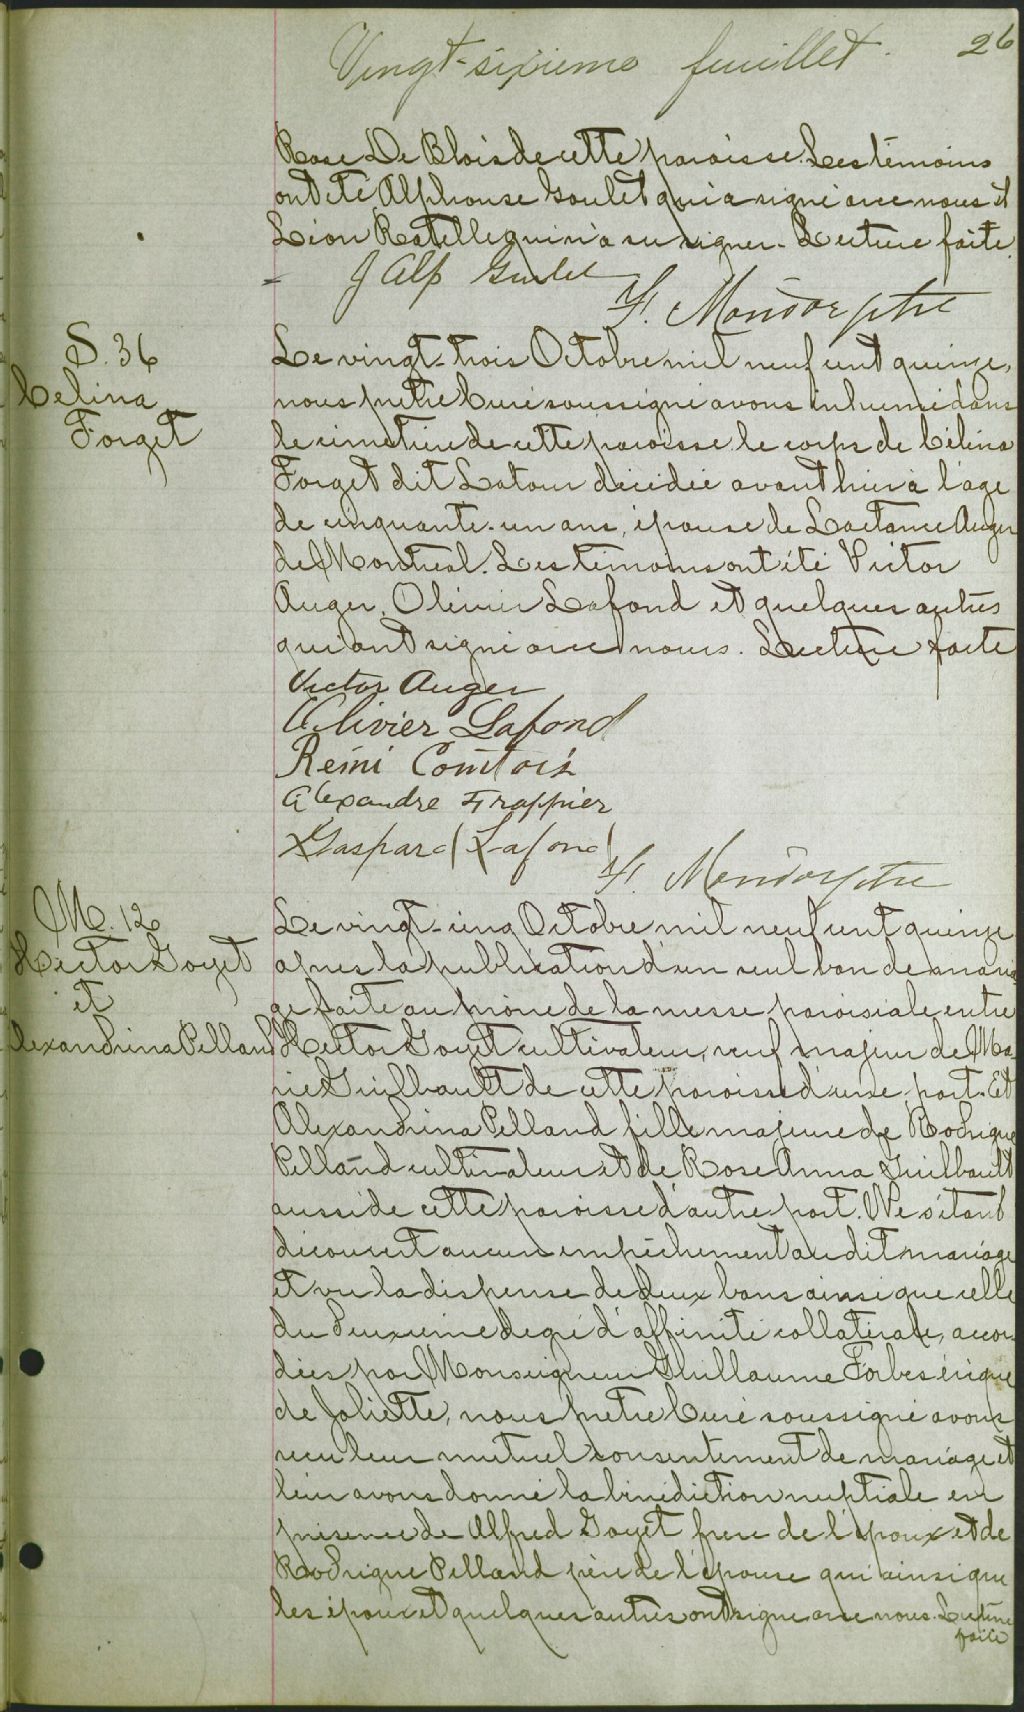 Vingt-sixième feuillet.
26
Rose De Blois de cette paroisse. Les témoins
ont été Alphonse Goulet qui a signé avec nous et
Léon Ratelle qui n'a su signer. Lecture faite.
J Alp Goulet
F. Mondor ptre
S. 36
Celina
Forget
Le vingt-trois Octobre mil neuf cent quinze,
nous prêtre Curé soussigné avons inhumé dans
le cimetière de cette paroisse le corps de Célina
Forget dit Latour décédée avant hier à l'age
de cinquante-un ans, épouse de Lactance Auger
de Montreal. Les témoins ont été Victor
Auger, Olivier Lafond et quelques autres
qui ont signé avec nous. Lecture faite
Victor Auger
Olivier Lafond
Rémi Comtois
Alexandre Frappier
Gaspard Lafond
F. Mondor ptre
M. 12
Hector Goyet
et
Alexandrina Pelland
Le vingt-cinq Octobre mil neuf cent quinze
après la publication d'un seul ban de maria-
ge faite au prône de la messe paroisiale entre
Hector Goyet cultivateur, veuf majeur de Ma-
rie Guilbault de cette paroisse d'une part. Et
Alexandrina Pelland fille majeure de Rodrigue
Pelland cultivateur et de Rose Anna Guilbault
aussi de cette paroisse d'autre part. Ne s'étant
découvert aucun empêchement au dit mariage
et vu la dispense de deux bans ainsi que celle
du deuxième degré d'affinité collatérale, accor-
dées par Monseigneur Guillaume Forbes évêque
de Joliette, nous prêtre Curé soussigné avons
reçu leur mutuel consentement de mariage et
leur avons donné la bénédiction nuptiale en
présence de Alfred Goyet frère de l'époux et de
Rodrigue Pelland père de l'épouse qui ainsi que
les époux et quelques autres ont signé avec nous. Lecture
faite